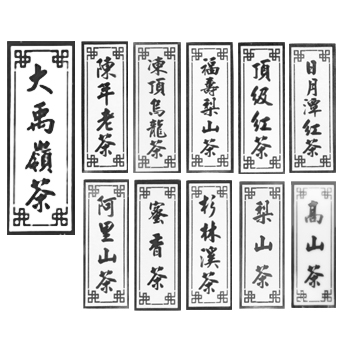 大禹嶺茶
陳年老茶
凍頂烏龍茶
福壽梨山茶
頂級紅茶
日月潭紅茶
阿里山茶
蜜香茶
杉林溪茶
梨山茶
高山茶